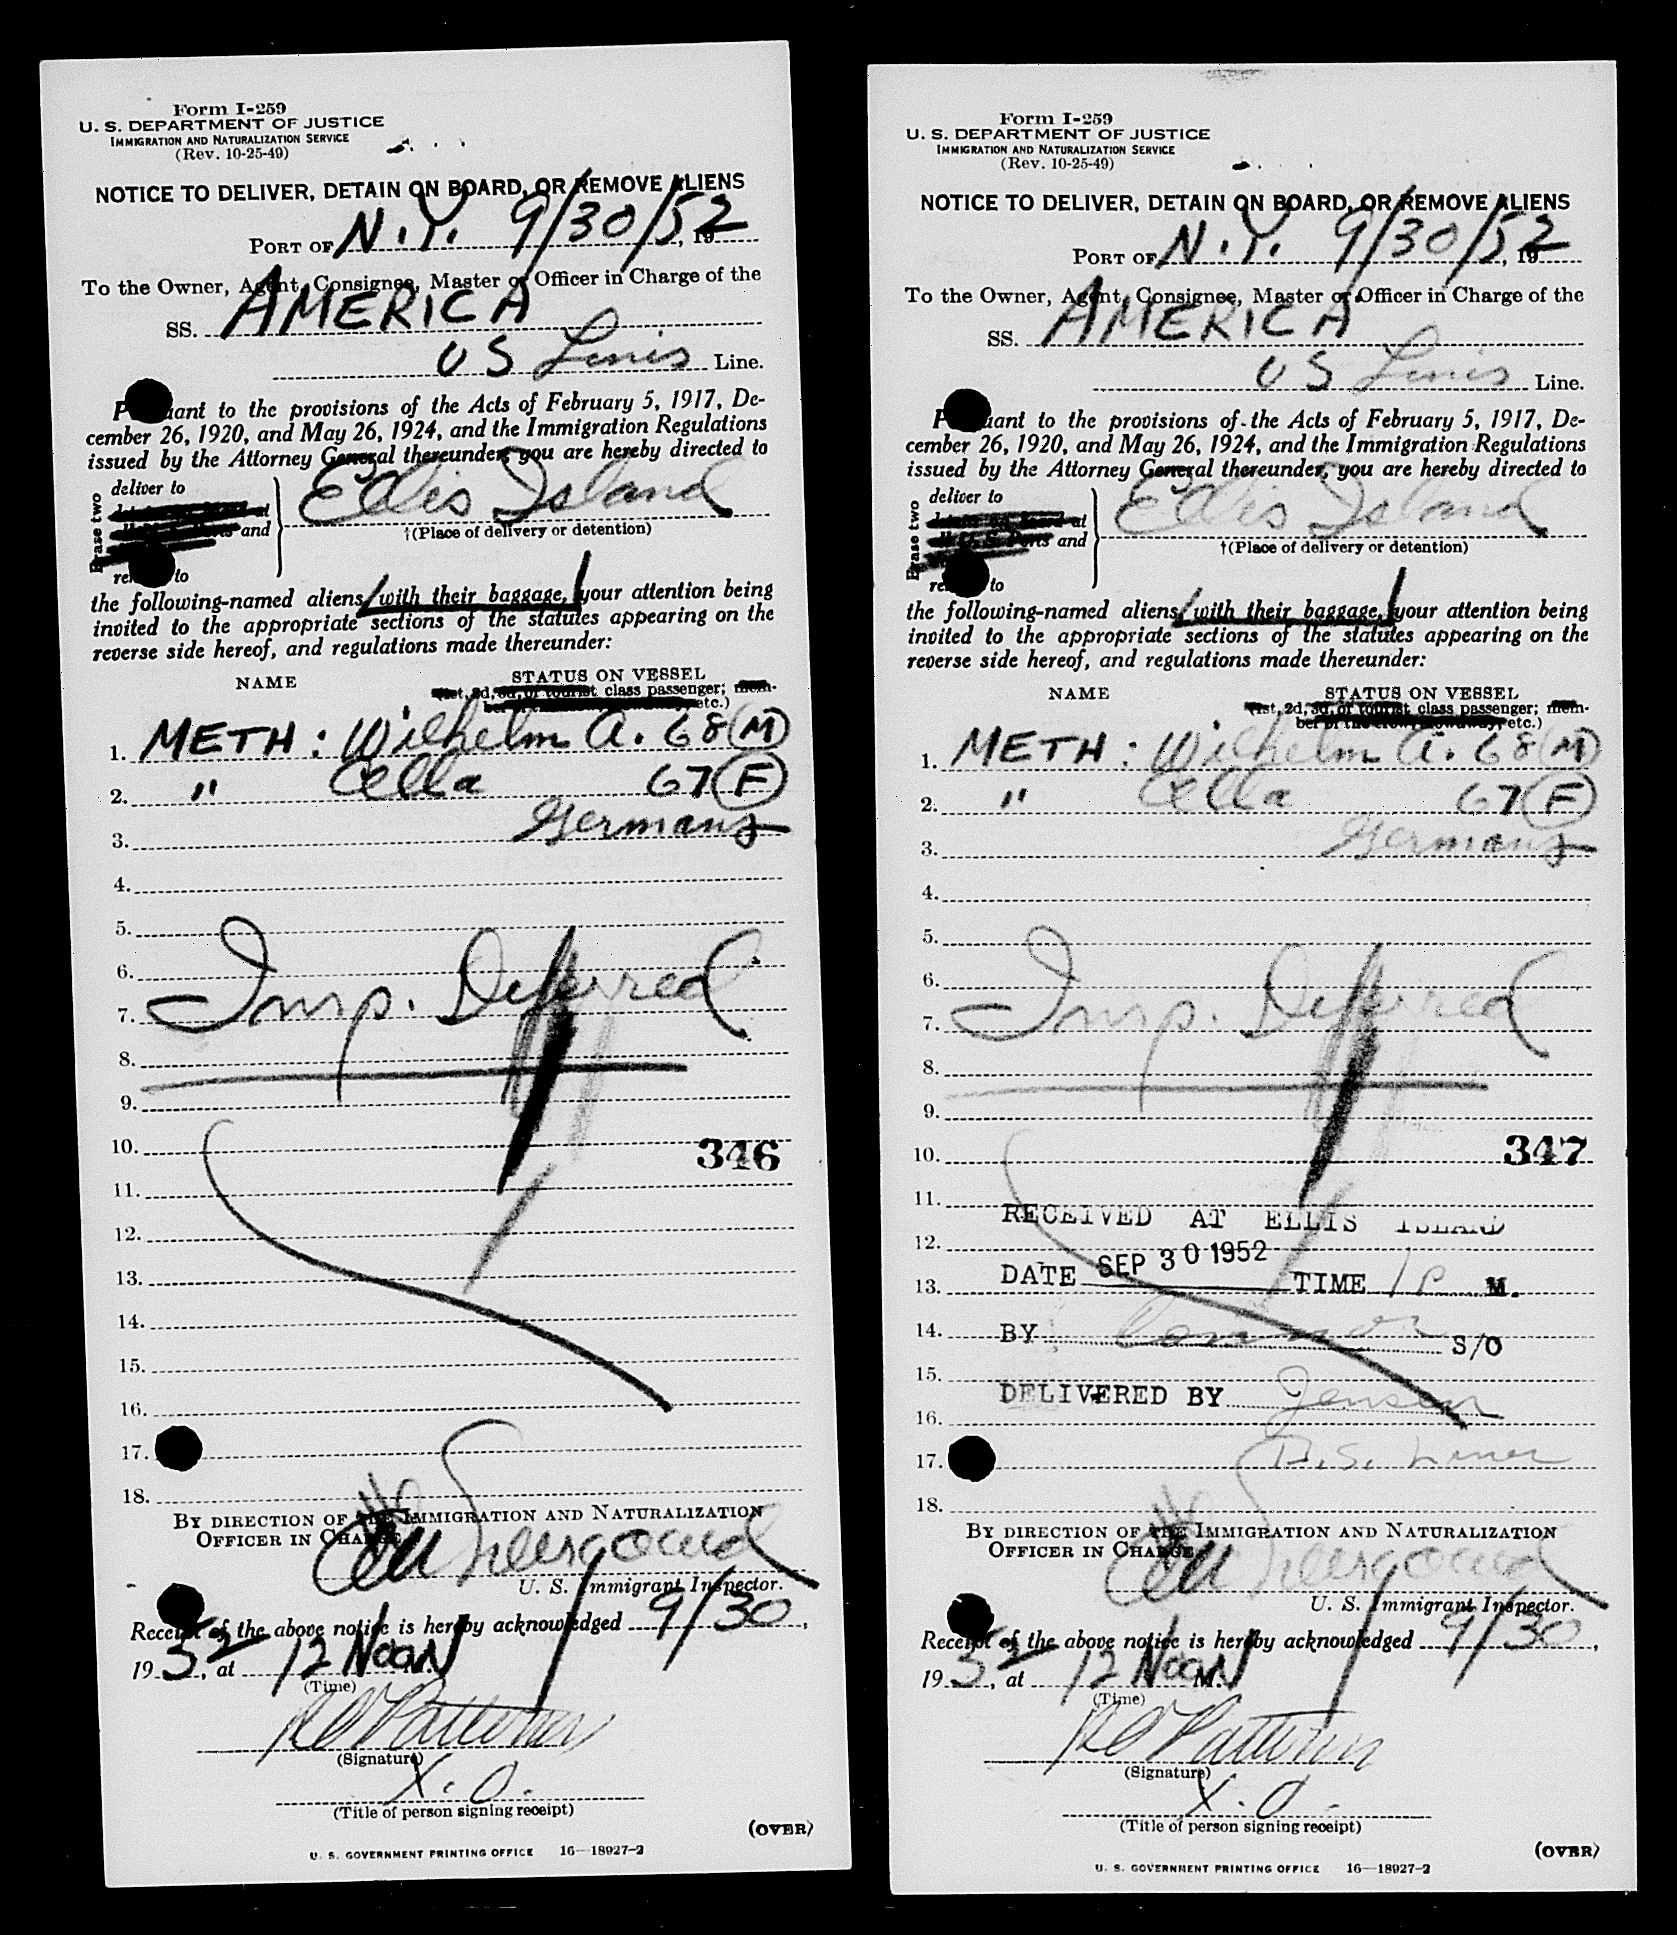 Form I-259
U. S. DEPARTMENT OF JUSTICE
IMMIGRATION AND NATURALIZATION SERVICE
(Rev. 10-25-49)
NOTICE TO DELIVER, DETAIN ON BOARD, OR REMOVE ALIENS
PORT OF N.Y. 9/30/52, 19
To the Owner, Agent, Consignee, Master or Officer in Charge of the
SS. AMERICA
US Lines Line.
Pursuant to the provisions of the Acts of February 5, 1917, De-
cember 26, 1920, and May 26, 1924, and the Immigration Regulations
issued by the Attorney General thereunder, you are hereby directed to
Erase two
deliver to
Ellis Island
and
†(Place of delivery or detention)
to
the following-named aliens, with their baggage, your attention being
invited to the appropriate sections of the statutes appearing on the
reverse side hereof, and regulations made thereunder:
NAME
STATUS ON VESSEL
class passenger; mem-
etc.)
1. METH: Wilhelm A. 68 (M)
2. " Cella 67 (F)
3. Germans
4.
5.
6.
7. Insp. Deferred
8.
9.
10. 346
11.
12.
13.
14.
15.
16.
17.
18.
BY DIRECTION OF THE IMMIGRATION AND NATURALIZATION
OFFICER IN CHARGE
U. S. Immigrant Inspector.
Receipt of the above notice is hereby acknowledged 9/30,
1952, at 12 Noon
(Time)
(Signature)
X.O.
(Title of person signing receipt)
(OVER)
U. S. GOVERNMENT PRINTING OFFICE 16—18927-2
Form I-259
U. S. DEPARTMENT OF JUSTICE
IMMIGRATION AND NATURALIZATION SERVICE
(Rev. 10-25-49)
NOTICE TO DELIVER, DETAIN ON BOARD, OR REMOVE ALIENS
PORT OF N.Y. 9/30/52, 19
To the Owner, Agent, Consignee, Master or Officer in Charge of the
SS. AMERICA
US Lines Line.
Pursuant to the provisions of the Acts of February 5, 1917, De-
cember 26, 1920, and May 26, 1924, and the Immigration Regulations
issued by the Attorney General thereunder, you are hereby directed to
Erase two
deliver to
Ellis Island
at
U. S. Ports and
†(Place of delivery or detention)
to
the following-named aliens, with their baggage, your attention being
invited to the appropriate sections of the statutes appearing on the
reverse side hereof, and regulations made thereunder:
NAME
STATUS ON VESSEL
(1st, 2d, 3d, or tourist class passenger; mem-
ber of the crew, etc.)
1. METH: Wilhelm A. 68 (M)
2. " Cella 67 (F)
3. Germans
4.
5.
6.
7. Insp. Deferred
8.
9.
10. 347
11.
RECEIVED AT ELLIS ISLAND
12.
13. DATE SEP 30 1952 TIME 1 P M.
14. BY Connor S/O
15.
DELIVERED BY Jensen
16.
17. U.S. Lines
18.
BY DIRECTION OF THE IMMIGRATION AND NATURALIZATION
OFFICER IN CHARGE
U. S. Immigrant Inspector.
Receipt of the above notice is hereby acknowledged 9/30,
1952, at 12 Noon M.
(Time)
(Signature)
X.O.
(Title of person signing receipt)
(OVER)
U. S. GOVERNMENT PRINTING OFFICE 16—18927-2